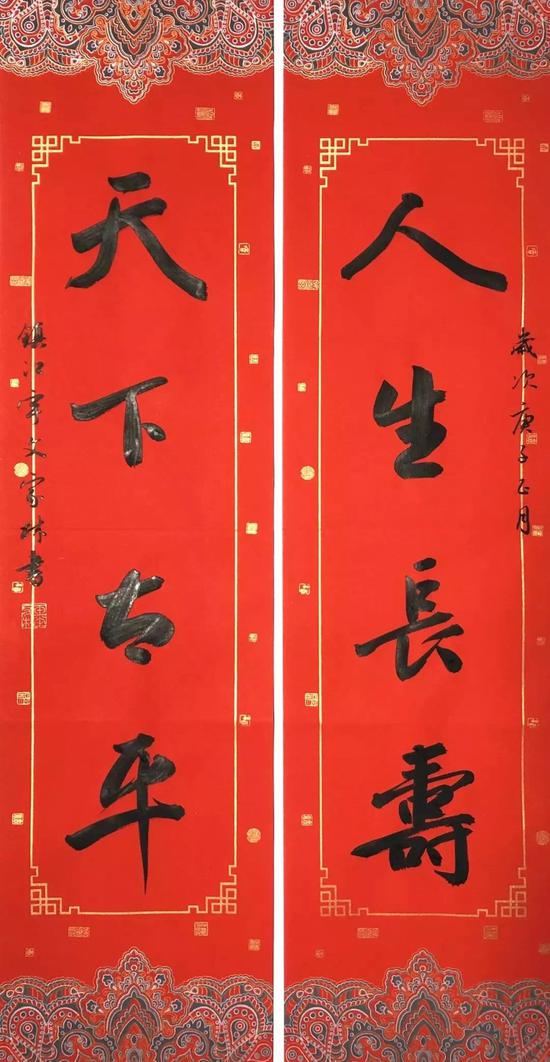 歲次庚子正月
人生長壽
天下太平
鎮江 文 書